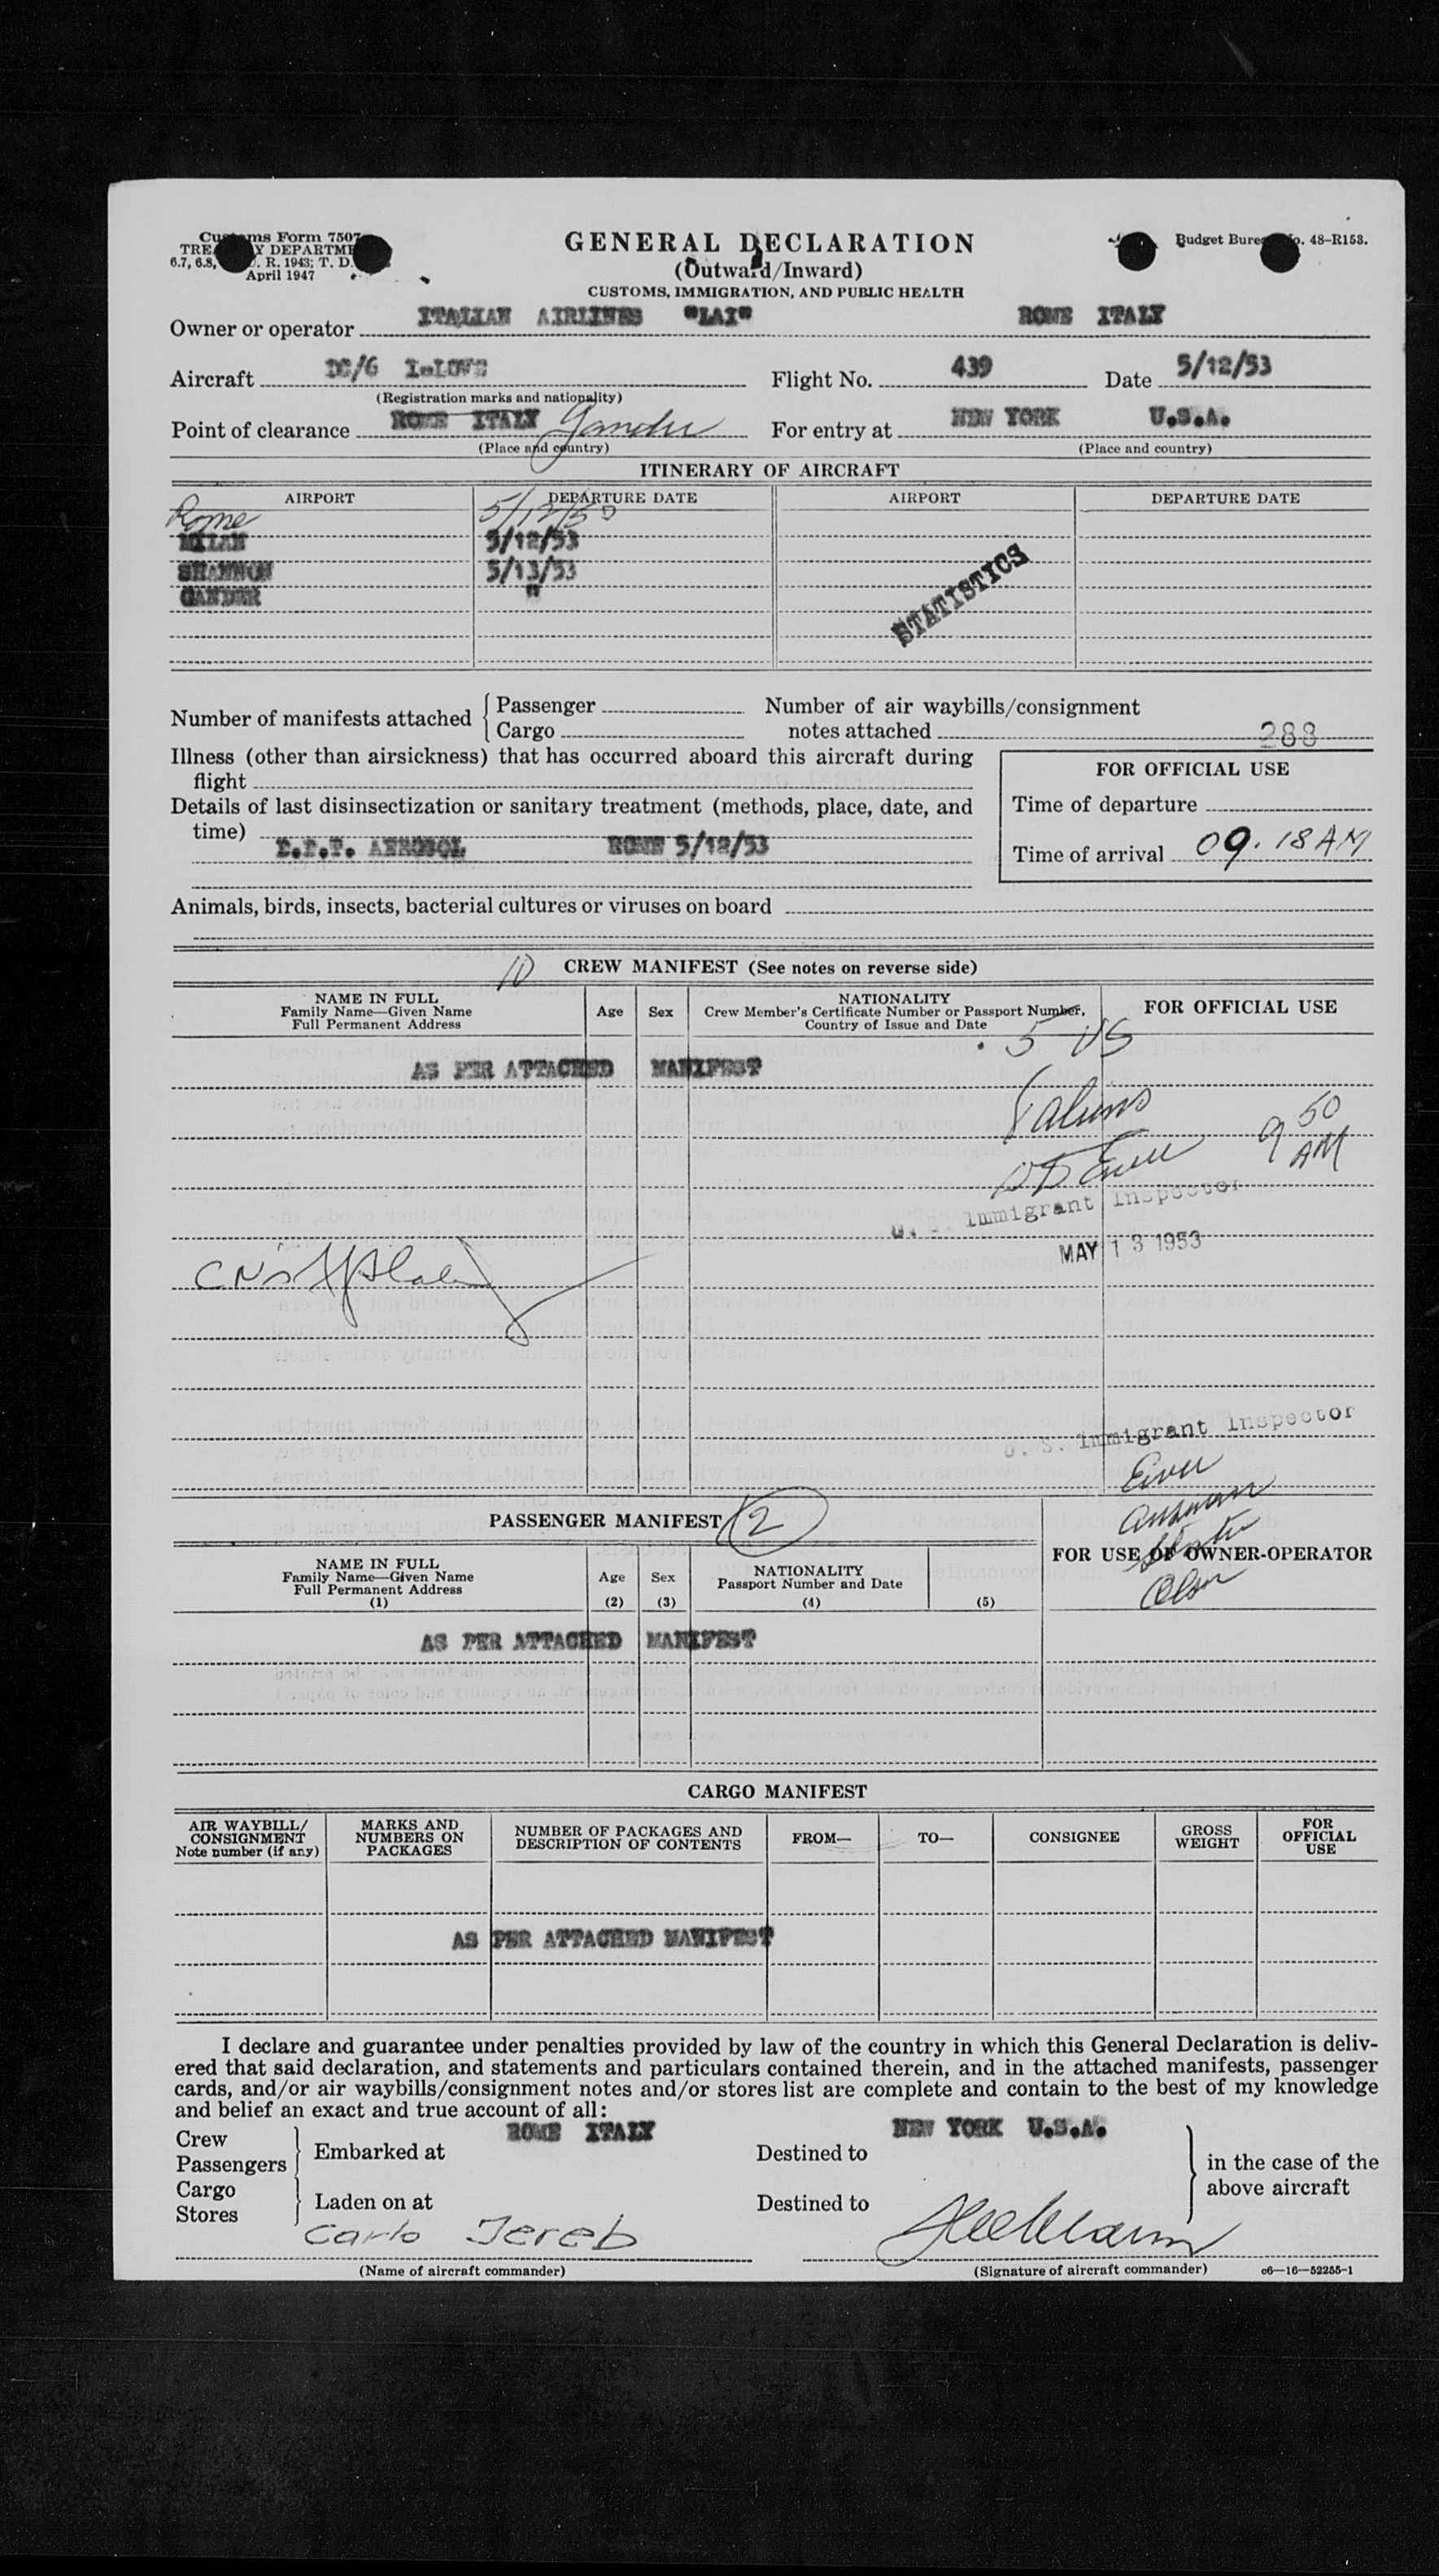 Customs Form 7507
GENERAL DECLARATION
Budget Bureau No. 48–R153.
TREASURY DEPARTMENT
(Outward/Inward)
6.7, 6.8, R. 1943; T. D.
April 1947
CUSTOMS, IMMIGRATION, AND PUBLIC HEALTH
Owner or operator ITALIAN AIRLINES "LAI" ROME ITALY
Aircraft DC/6 I-LOVE Flight No. 439 Date 5/12/53
(Registration marks and nationality)
Point of clearance ROME ITALY Gander For entry at NEW YORK U.S.A.
(Place and country) (Place and country)
ITINERARY OF AIRCRAFT
AIRPORT DEPARTURE DATE AIRPORT DEPARTURE DATE
Rome 5/12/53
MILAN 5/12/53
SHANNON 5/13/53
GANDER "
STATISTICS
Number of manifests attached { Passenger Number of air waybills/consignment
Cargo notes attached
288
Illness (other than airsickness) that has occurred aboard this aircraft during
flight
FOR OFFICIAL USE
Details of last disinsectization or sanitary treatment (methods, place, date, and
time)
Time of departure
D.D.T. AEROSOL ROME 5/12/53
Time of arrival 09.18 AM
Animals, birds, insects, bacterial cultures or viruses on board
10 CREW MANIFEST (See notes on reverse side)
NAME IN FULL
Family Name—Given Name
Full Permanent Address
Age Sex
NATIONALITY
Crew Member's Certificate Number or Passport Number,
Country of Issue and Date
FOR OFFICIAL USE
5 US
AS PER ATTACHED MANIFEST
9 50
AM
U. S. Immigrant Inspector
MAY 13 1953
U. S. Immigrant Inspector
PASSENGER MANIFEST 2
FOR USE OF OWNER-OPERATOR
Olson
NAME IN FULL
Family Name—Given Name
Full Permanent Address
(1)
Age
(2)
Sex
(3)
NATIONALITY
Passport Number and Date
(4) (5)
AS PER ATTACHED MANIFEST
CARGO MANIFEST
AIR WAYBILL/
CONSIGNMENT
Note number (if any)
MARKS AND
NUMBERS ON
PACKAGES
NUMBER OF PACKAGES AND
DESCRIPTION OF CONTENTS
FROM—
TO—
CONSIGNEE
GROSS
WEIGHT
FOR
OFFICIAL
USE
AS PER ATTACHED MANIFEST
I declare and guarantee under penalties provided by law of the country in which this General Declaration is deliv-
ered that said declaration, and statements and particulars contained therein, and in the attached manifests, passenger
cards, and/or air waybills/consignment notes and/or stores list are complete and contain to the best of my knowledge
and belief an exact and true account of all:
Crew
Passengers
Embarked at ROME ITALY Destined to NEW YORK U.S.A.
in the case of the
above aircraft
Cargo
Stores
Laden on at Destined to
Carlo Jereb
(Name of aircraft commander) (Signature of aircraft commander) c6—16—52255-1